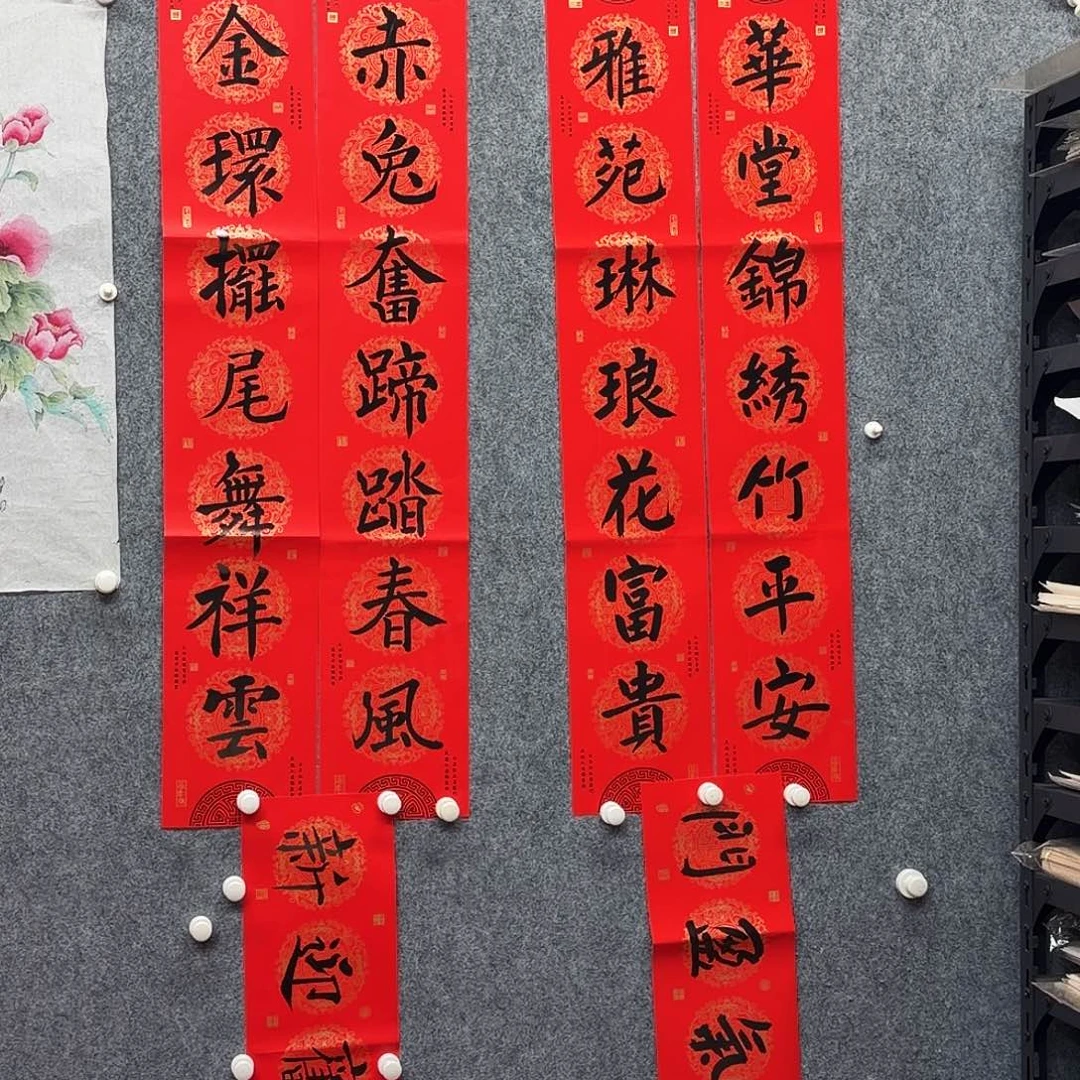 華堂錦綉竹平安
雅苑琳琅花富貴
氣盈門
赤兔奮蹄踏春風
金環擺尾舞祥雲
舊迎新